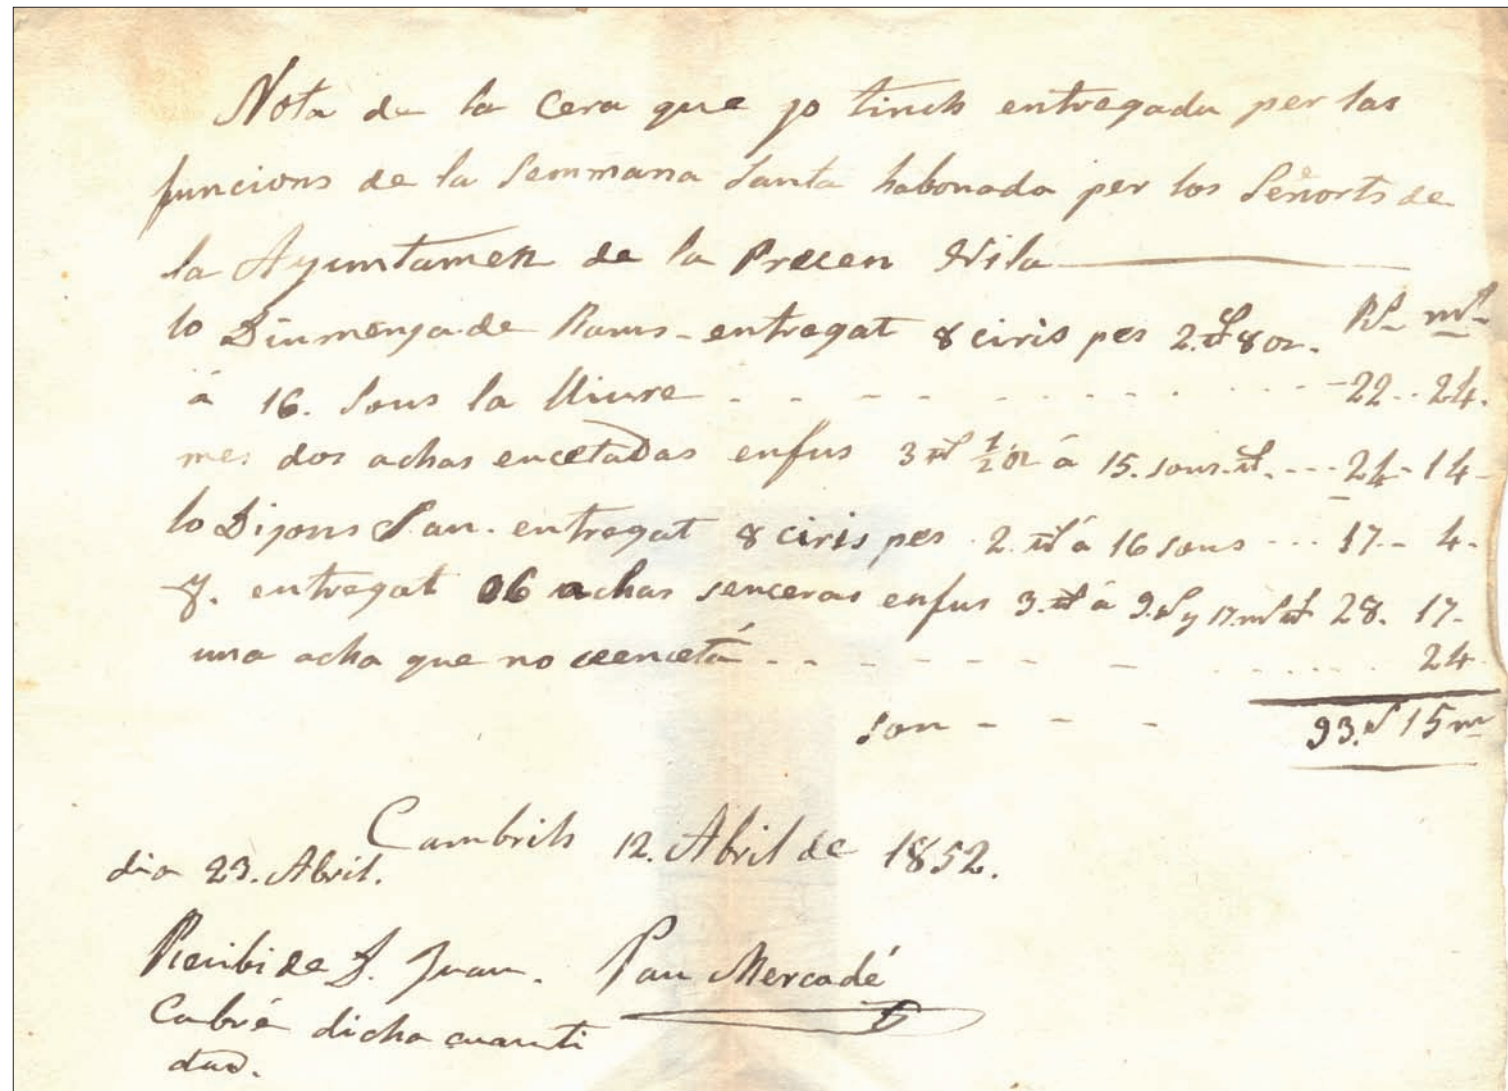 Nota de la Cera que jo tinch entregada per las
funcions de la Semmana Santa habonada per los Señorts de
la Ayuntament de la Precen Vila
lo Diumenja de Rams - entregat 8 ciris pes 2. ll 8 on. Rs mrs
á 16. Sous la lliure - - - - 22 .. 24.
mes dos achas encetadas enfus 3 ll 1/2 on á 15. sous ll. --- 24 - 14 -
lo Dijous San. entregat 8 ciris pes 2. ll á 16 sous --- 17 - 4.
Y. entregat 06 achas senceras enfus 3. ll á 9. rs y 17. ms ll 28. 17.
una acha que no ce encetá - - - - 24
son - - - 93. rs 15 m
Cambrils 12. Abril de 1852.
dia 23. Abril.
Recibi de D. Juan. Pau Mercadé
Cabré dicha cuanti
dad.